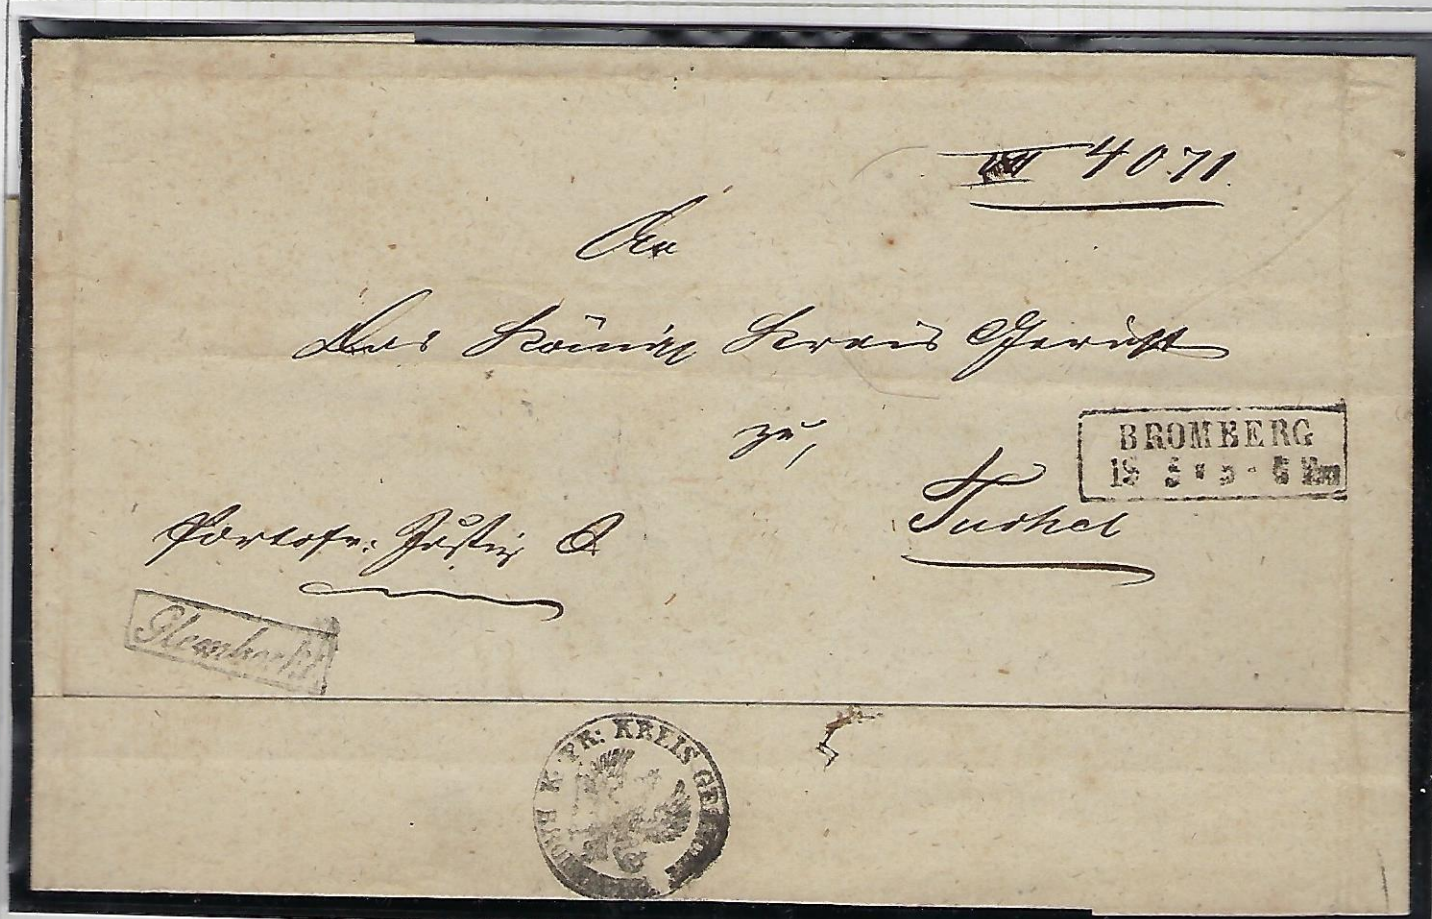 4071.
An
Das Königl Kreis Gericht
zu,
BROMBERG
18 5
Tuchel
Portofr. Justiz S
K. PR: KREIS GERICHT